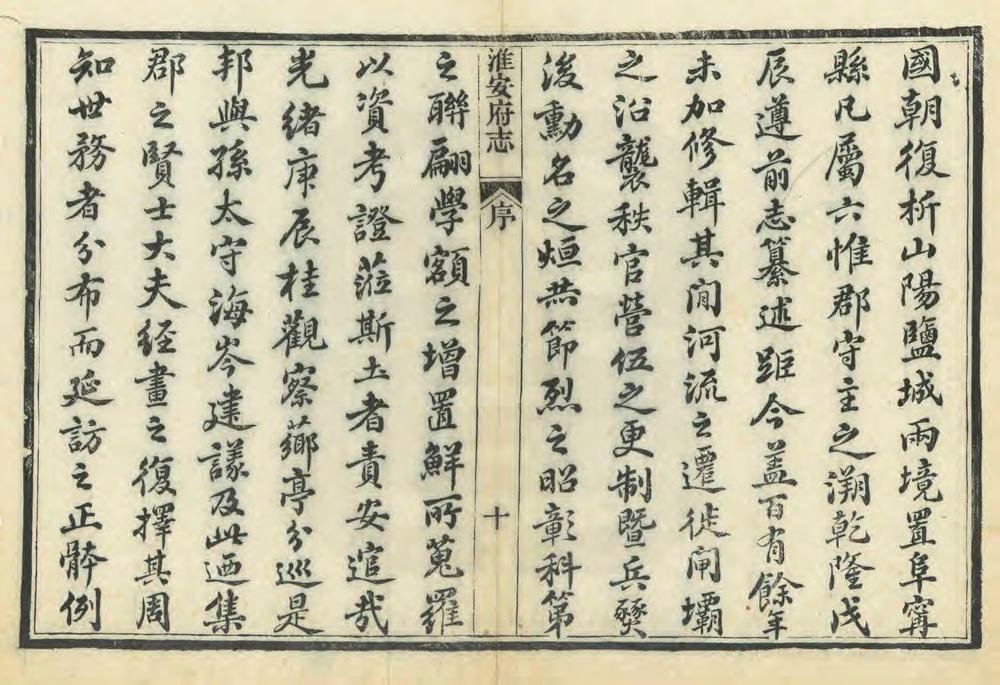 國朝復析山陽鹽城兩境置阜寧
縣凡屬六惟郡守主之溯乾隆戊
辰遵前志纂述距今蓋百有餘年
未加修輯其閒河流之遷徙閘壩
之沿襲秩官營伍之更制暨兵燹
後勳名之烜赫節烈之昭彰科第
淮安府志 序 十
之聯翩學額之增置鮮所蒐羅
以資考證蒞斯土者責安逭哉
光緒庚辰桂觀察薌亭分巡是
邦與孫太守海岑建議及此迺集
郡之賢士大夫經畫之復擇其周
知世務者分布而延訪之正體例